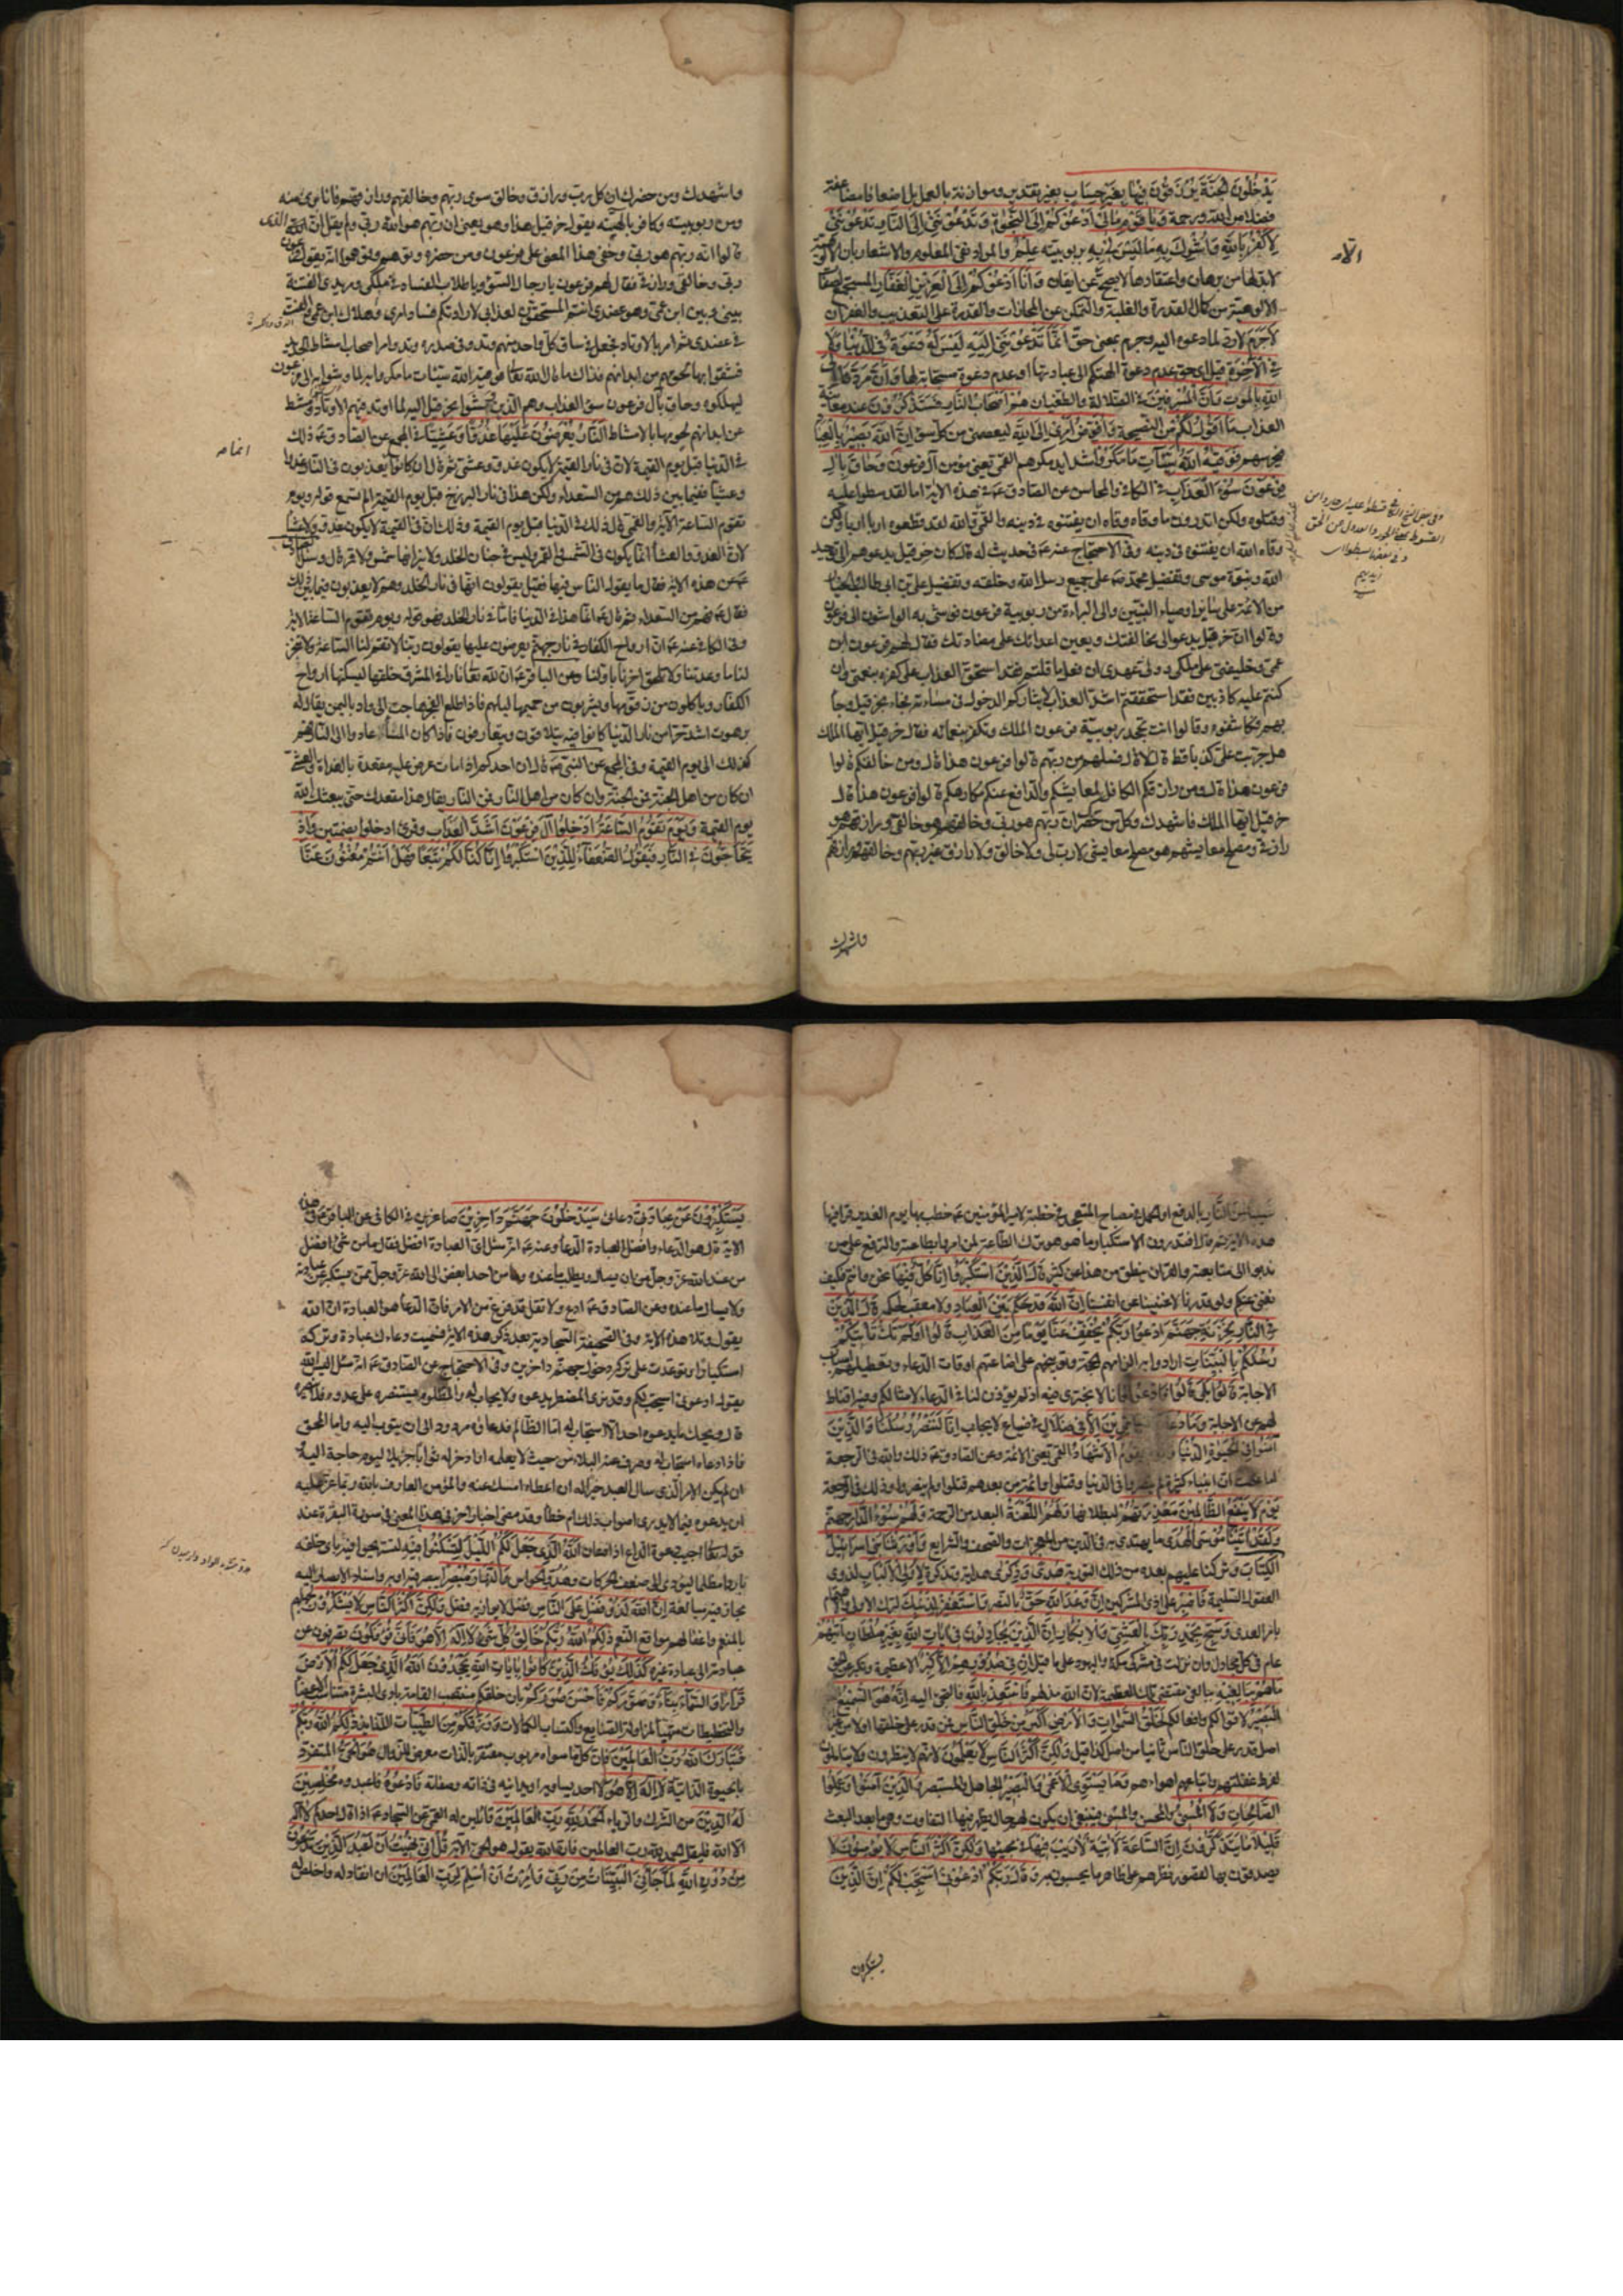 يَدْخُلُونَ الْجَنَّةَ يُرْزَقُونَ فِيهَا بِغَيْرِ حِسَابٍ بغير تقدير وموازنة بالعمل بل اضعافا مضاعفة
فضلا من الله ورحمة وَيَا قَوْمِ مَا لِي أَدْعُوكُمْ إِلَى النَّجَوةِ وَتَدْعُونَنِي إِلَى النَّارِ تَدْعُونَنِي
لِأَكْفُرَ بِاللَّهِ وَأُشْرِكَ بِهِ مَا لَيْسَ لِي بِهِ بربوبيته عِلْمٌ والمراد نفي المعلوم والاشعار بان الالوهية
لابد لها من برهان واعتقادها لا يصح الا عن ايقان وَأَنَا أَدْعُوكُمْ إِلَى الْعَزِيزِ الْغَفَّارِ المستجمع لصفات
الالوهية من كمال القدرة والغلبة والتمكن من المجازات والقدرة على التعذيب والغفران
لَا جَرَمَ لا رد لما دعوه اليه وجرم بمعنى حق أَنَّمَا تَدْعُونَنِي إِلَيْهِ لَيْسَ لَهُ دَعْوَةٌ فِي الدُّنْيَا وَلَا
فِي الْآخِرَةِ قيل اي حق عدم دعوة الهتكم الى عبادتها او عدم دعوة مستجابة لها وَأَنَّ مَرَدَّنَا إِلَى
اللَّهِ بالموت وَأَنَّ الْمُسْرِفِينَ في الضلالة والطغيان هُمْ أَصْحَابُ النَّارِ فَسَتَذْكُرُونَ عند معاينة
العذاب مَا أَقُولُ لَكُمْ من النصيحة وَأُفَوِّضُ أَمْرِي إِلَى اللَّهِ ليعصمني من كل سوء إِنَّ اللَّهَ بَصِيرٌ بِالْعِبَادِ
فيحرسهم فَوَقَيهُ اللَّهُ سَيِّئَاتِ مَا مَكَرُوا شدايد مكرهم القمي يعني مؤمن آل فرعون وَحَاقَ بِآلِ
فِرْعَوْنَ سُوءُ الْعَذَابِ في الكافي والمحاسن عن الصادق ع في هذه الاية اما لقد سطوا عليه
وقتلوه ولكن اتدرون ما وقاه وقاه ان يفتنوه في دينه والقمي والله لقد قطعوه اربا اربا ولكن
وقاه الله ان يفتنوه في دينه وفي الاحتجاج عنه ع في حديث له قال كان حزقيل يدعوهم الى توحيد
الله ونبوة موسى وتفضيل محمد ص على جميع رسل الله وخلقه وتفضيل علي بن ابي طالب والخيار
من الائمة على سائر اوصياء النبيين والى البراءة من ربوبية فرعون فوشى به الواشون الى فرعون
وقالوا ان حزقيل يدعو الى مخالفتك ويعين اعدائك على مضادتك فقال لهم فرعون ابن
عمي وخليفتي على ملكي وولي عهدي ان فعل ما قلتم فقد استحق العذاب على كفره بنعمتي وان
كنتم عليه كاذبين فقد استحققتم اشد العذاب لايثاركم الدخول في مساءته فجاء بحزقيل وجاء
بهم فكاشفوه وقالوا انت تجحد ربوبية فرعون الملك وتكفر بنعمائه فقال حزقيل ايها الملك
هل جربت علي كذبا قط قال لا قال فسلهم من ربهم قالوا فرعون هذا قال ومن خالقكم قالوا
فرعون هذا قال ومن رازقكم الكافل لمعايشكم والدافع عنكم مكارهكم قالوا فرعون هذا قال
حزقيل ايها الملك فاشهدك وكل من حضرك ان ربهم هو ربي وخالقهم هو خالقي ورازقهم هو
رازقي ومصلح معايشهم هو مصلح معايشي لا رب لي ولا خالق ولا رازق غير ربهم وخالقهم ورازقهم
واشهدك
واشهدك ومن حضرك ان كل رب ورازق وخالق سوى ربهم وخالقهم ورازقهم فانا بريء منه
ومن ربوبيته وكافر بالهيته يقول حزقيل هذا وهو يعني ان ربهم هو الله ربي ولم يقل ان الذي
قالوا انه ربهم هو ربي وخفي هذا المعنى على فرعون ومن حضره وتوهموا انه يقول فرعون
ربي وخالقي ورازقي فقال لهم فرعون يا رجال السوء ويا طلاب الفساد في ملكي ومريدي الفتنة
بيني وبين ابن عمي وهو عضدي انتم المستحقون لعذابي لارادتكم فساد امري وهلاك ابن عمي والفت
في عضدي ثم امر بالاوتاد فجعل في ساق كل واحد منهم وتد وفي صدره وتد وامر اصحاب امشاط الحديد
فشقوا بها لحومهم من ابدانهم فذلك ما قال الله تعالى فوقيه الله سيئات ما مكروا به لما وشوا به الى فرعون
ليهلكوه وحاق بآل فرعون سوء العذاب وهم الذين وشوا بحزقيل اليه لما اوتد فيهم الاوتاد ومشط
عن ابدانهم لحومها بالامشاط النَّارُ يُعْرَضُونَ عَلَيْهَا غُدُوًّا وَعَشِيًّا في المجمع عن الصادق ع ذلك
في الدنيا قبل يوم القيمة لان في نار القيمة لا يكون غدو وعشي ثم قال ان كانوا يعذبون في النار غدوا
وعشيا ففيما بين ذلك هم من السعداء ولكن هذا في نار البرزخ قبل يوم القيمة الم تسمع قوله ويوم
تقوم الساعة الاية والقمي قال ذلك في الدنيا قبل يوم القيمة وذلك ان في القيمة لا يكون غدوا ولا عشيا
لان الغدو والعشا انما يكون في الشمس والقمر وليس في جنان الخلد ولا نيرانها شمس ولا قمر قال وسئل الصادق
ع عن هذه الاية فقال ما يقول الناس فيها فقيل يقولون انها في نار الخلد وهم لا يعذبون فيما بين ذلك
فقال ع فهم من السعداء ثم قال ع انما هذا في الدنيا فاما في نار الخلد فهو قوله ويوم تقوم الساعة الاية
وفي الكافي عنه ع ان ارواح الكفار في نار جهنم يعرضون عليها يقولون ربنا لا تقم لنا الساعة ولا تنجز
لنا ما وعدتنا ولا تلحق اخرنا باولنا وعن الباقر ع ان لله تعالى نارا في المشرق خلقها ليسكنها ارواح
الكفار وياكلون من زقومها ويشربون من حميمها ليلهم فاذا طلع الفجر هاجت الى واد باليمن يقال له
برهوت اشد حرا من نار الدنيا كانوا فيه يتلاقون ويتعارفون فاذا كان المساء عادوا الى النار فهم
كذلك الى يوم القيمة وفي المجمع عن النبي ص قال ان احدكم اذا مات عرض عليه مقعده بالغداة والعشي
ان كان من اهل الجنة فمن الجنة وان كان من اهل النار فمن النار يقال هذا مقعدك حتى يبعثك الله
يوم القيمة وَيَوْمَ تَقُومُ السَّاعَةُ أَدْخِلُوا آلَ فِرْعَوْنَ أَشَدَّ الْعَذَابِ وقرئ ادخلوا بضمتين وَإِذْ
يَتَحَاجُّونَ فِي النَّارِ فَيَقُولُ الضُّعَفَاءُ لِلَّذِينَ اسْتَكْبَرُوا إِنَّا كُنَّا لَكُمْ تَبَعًا فَهَلْ أَنْتُمْ مُغْنُونَ عَنَّا
نَصِيبًا مِنَ النَّارِ بالدفع او الحمل في مصباح المتهجد في خطبة لامير المؤمنين ع خطب بها يوم الغدير وقرا فيها
هذه الاية ثم قال افتدرون الاستكبار ما هو هو ترك الطاعة لمن امروا بطاعته والترفع على من
ندبوا الى متابعته والقران ينطق من هذا عن كثير قَالَ الَّذِينَ اسْتَكْبَرُوا إِنَّا كُلٌّ فِيهَا نحن وانتم فكيف
نغني عنكم ولو قدرنا لاغنينا عن انفسنا إِنَّ اللَّهَ قَدْ حَكَمَ بَيْنَ الْعِبَادِ ولا معقب لحكمه وَقَالَ الَّذِينَ
فِي النَّارِ لِخَزَنَةِ جَهَنَّمَ ادْعُوا رَبَّكُمْ يُخَفِّفْ عَنَّا يَوْمًا مِنَ الْعَذَابِ قَالُوا أَوَلَمْ تَكُ تَأْتِيكُمْ
رُسُلُكُمْ بِالْبَيِّنَاتِ ارادوا به الزامهم الحجة وتوبيخهم على اضاعتهم اوقات الدعاء وتعطيلهم اسباب
الاجابة قَالُوا بَلَى قَالُوا فَادْعُوا فانا لا نجترئ فيه اذ لم يؤذن لنا في الدعاء لامثالكم وفيه اقناط
لهم عن الاجابة وَمَا دُعَاءُ الْكَافِرِينَ إِلَّا فِي ضَلَالٍ في ضياع لا يجاب إِنَّا لَنَنْصُرُ رُسُلَنَا وَالَّذِينَ
آمَنُوا فِي الْحَيَوةِ الدُّنْيَا وَيَوْمَ يَقُومُ الْأَشْهَادُ القمي يعني الائمة وعن الصادق ع ذلك والله في الرجعة
اما علمت ان انبياء كثيرة لم ينصروا في الدنيا وقتلوا وائمة من بعدهم قتلوا ولم ينصروا وذلك في الرجعة
يَوْمَ لَا يَنْفَعُ الظَّالِمِينَ مَعْذِرَتُهُمْ لبطلانها وَلَهُمُ اللَّعْنَةُ البعد من الرحمة وَلَهُمْ سُوءُ الدَّارِ جهنم
وَلَقَدْ آتَيْنَا مُوسَى الْهُدَى ما يهتدى به في الدين من المعجزات والصحف والشرايع وَأَوْرَثْنَا بَنِي إِسْرَائِيلَ
الْكِتَابَ وتركنا عليهم بعده من ذلك التورية هُدًى وَذِكْرَى هداية وتذكرة لِأُولِي الْأَلْبَابِ لذوي
العقول السليمة فَاصْبِرْ على اذى المشركين إِنَّ وَعْدَ اللَّهِ حَقٌّ بالنصر وَاسْتَغْفِرْ لِذَنْبِكَ لترك الاولى والاهتمام
بامر العدى وَسَبِّحْ بِحَمْدِ رَبِّكَ بِالْعَشِيِّ وَالْإِبْكَارِ إِنَّ الَّذِينَ يُجَادِلُونَ فِي آيَاتِ اللَّهِ بِغَيْرِ سُلْطَانٍ أَتَيهُمْ
عام في كل مجادل وان نزلت في مشركي مكة واليهود على ما قيل إِنْ فِي صُدُورِهِمْ إِلَّا كِبْرٌ الا عظمة وتكبر عن الحق
مَا هُمْ بِبَالِغِيهِ ببالغي مقتضى تلك العظمة لان الله مذلهم فَاسْتَعِذْ بِاللَّهِ فالتجئ اليه إِنَّهُ هُوَ السَّمِيعُ
الْبَصِيرُ لاقوالكم وافعالكم لَخَلْقُ السَّمَاوَاتِ وَالْأَرْضِ أَكْبَرُ مِنْ خَلْقِ النَّاسِ فمن قدر على خلقها اولا من غير
اصل قدر على خلق الناس ثانيا من اصل كذا قيل وَلَكِنَّ أَكْثَرَ النَّاسِ لَا يَعْلَمُونَ لانهم لا ينظرون ولا يتاملون
لفرط غفلتهم واتباعهم اهواءهم وَمَا يَسْتَوِي الْأَعْمَى وَالْبَصِيرُ الجاهل والمستبصر وَالَّذِينَ آمَنُوا وَعَمِلُوا
الصَّالِحَاتِ وَلَا الْمُسِيءُ والمحسن والمسيء فينبغي ان يكون لهم حال يظهر فيها التفاوت وهي ما بعد البعث
قَلِيلًا مَا يَتَذَكَّرُونَ إِنَّ السَّاعَةَ لَآتِيَةٌ لَا رَيْبَ فِيهَا في مجيئها وَلَكِنَّ أَكْثَرَ النَّاسِ لَا يُؤْمِنُونَ لا
يصدقون بها لقصور نظرهم على ظاهر ما يحسون به وَقَالَ رَبُّكُمُ ادْعُونِي أَسْتَجِبْ لَكُمْ إِنَّ الَّذِينَ
يستكبرون
يَسْتَكْبِرُونَ عَنْ عِبَادَتِي دعائي سَيَدْخُلُونَ جَهَنَّمَ دَاخِرِينَ صاغرين في الكافي عن الباقر ع في هذه
الاية قال هو الدعاء وافضل العبادة الدعاء وعنه ع انه سئل اي العبادة افضل فقال ما من شيء افضل
من عند الله عز وجل من ان يسال ويطلب ما عنده وما من احد ابغض الى الله عز وجل ممن يستكبر عن عبادته
ولا يسال ما عنده وعن الصادق ع ادع ولا تقل قد فرغ من الامر فان الدعا هو العبادة ان الله
يقول وتلا هذه الاية وفي الصحيفة السجادية بعد ذكر هذه الاية فسميت دعاءك عبادة وتركه
استكبارا وتوعدت على تركه دخول جهنم داخرين وفي الاحتجاج عن الصادق ع انه سئل اليس الله
يقول ادعوني استجب لكم وقد نرى المضطر يدعوه ولا يجاب له والمظلوم يستنصره على عدوه فلا ينصره
قال ويحك ما يدعوه احد الا استجاب له اما الظالم فدعاؤه مردود الى ان يتوب اليه واما المحق
فاذا دعاه استجاب له وصرف عنه البلاء من حيث لا يعلمه او ادخر له ثوابا جزيلا ليوم حاجة اليه
ان لم يكن الامر الذي سال العبد خيرا له ان اعطاه امسك عنه والمؤمن العارف بالله ربما عز عليه
ان يدعوه فيما لا يدري اصواب ذلك ام خطأ وقد مضى اخبار اخر في هذا المعنى في سورة البقرة عند
قوله تعالى اجيب دعوة الداع اذا دعان اللَّهُ الَّذِي جَعَلَ لَكُمُ اللَّيْلَ لِتَسْكُنُوا فِيهِ لتستريحوا فيه بان خلقه
باردا مظلما ليؤدي الى ضعف الحركات وهدو الحواس وَالنَّهَارَ مُبْصِرًا يبصر فيه او به واسناد الابصار اليه
مجاز فيه مبالغة إِنَّ اللَّهَ لَذُو فَضْلٍ عَلَى النَّاسِ فضل لا يوازيه فضل وَلَكِنَّ أَكْثَرَ النَّاسِ لَا يَشْكُرُونَ لجهلهم
بالمنعم واغفالهم مواقع النعم ذَلِكُمُ اللَّهُ رَبُّكُمْ خَالِقُ كُلِّ شَيْءٍ لَا إِلَهَ إِلَّا هُوَ فَأَنَّى تُؤْفَكُونَ تصرفون عن
عبادته الى عبادة غيره كَذَلِكَ يُؤْفَكُ الَّذِينَ كَانُوا بِآيَاتِ اللَّهِ يَجْحَدُونَ اللَّهُ الَّذِي جَعَلَ لَكُمُ الْأَرْضَ
قَرَارًا وَالسَّمَاءَ بِنَاءً وَصَوَّرَكُمْ فَأَحْسَنَ صُوَرَكُمْ بان خلقكم منتصب القامة بادي البشرة متناسب الاعضاء
والتخطيطات متهيأ لمزاولة الصنايع واكتساب الكمالات وَرَزَقَكُمْ مِنَ الطَّيِّبَاتِ اللذايذ ذَلِكُمُ اللَّهُ رَبُّكُمْ
فَتَبَارَكَ اللَّهُ رَبُّ الْعَالَمِينَ فان كل ما سواه مربوب مفتقر بالذات معرض للزوال هُوَ الْحَيُّ المتفرد
بالحيوة الذاتية لَا إِلَهَ إِلَّا هُوَ لا احد يساويه او يدانيه في ذاته وصفاته فَادْعُوهُ فاعبدوه مُخْلِصِينَ
لَهُ الدِّينَ من الشرك والرياء الْحَمْدُ لِلَّهِ رَبِّ الْعَالَمِينَ قائلين له القمي عن السجاد ع اذا قال احدكم لا اله
الا الله فليقل الحمد لله رب العالمين فان الله يقول هو الحي الاية قُلْ إِنِّي نُهِيتُ أَنْ أَعْبُدَ الَّذِينَ تَدْعُونَ
مِنْ دُونِ اللَّهِ لَمَّا جَاءَنِيَ الْبَيِّنَاتُ مِنْ رَبِّي وَأُمِرْتُ أَنْ أُسْلِمَ لِرَبِّ الْعَالَمِينَ ان انقاد له واخلص له